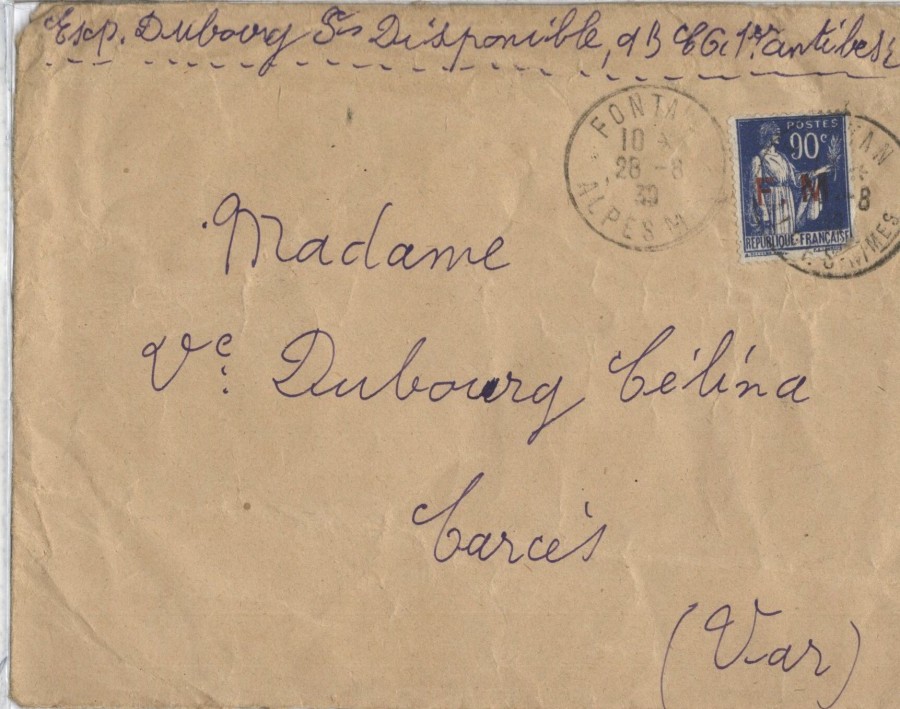 Exp. Dubourg Disponible, 9B CG. antibes
FONTAN
10 *
28 -8
39
ALPES MMES
POSTES
90c
F M
RÉPUBLIQUE FRANÇAISE
-8
Madame
Ve: Dubourg Célina
Carcès
(Var)